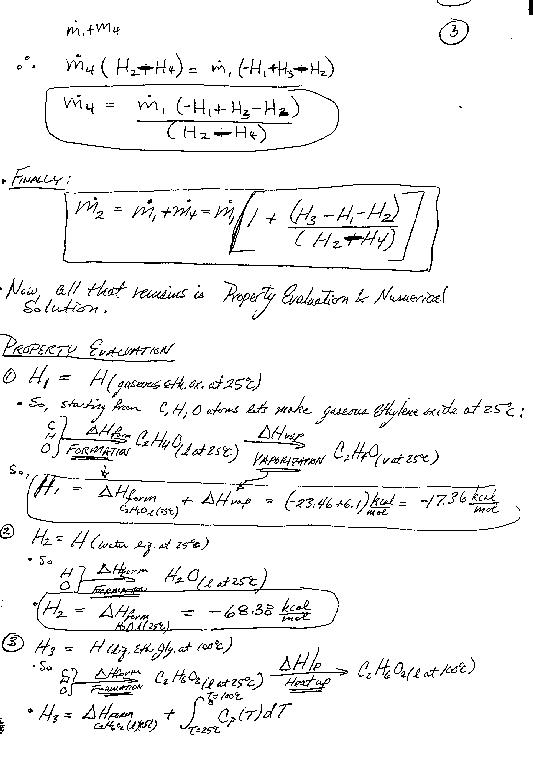 ṁ₁+ṁ₄
③
∴ ṁ₄ (H₂+H₄) = ṁ₁ (-H₁+H₃-H₂)
ṁ₄ = ṁ₁ (-H₁+H₃-H₂) / (H₂+H₄)
• FINALLY:
ṁ₂ = ṁ₁+ṁ₄ = ṁ₁ [1 + (H₃-H₁-H₂) / (H₂+H₄)]
• Now, all that remains is Property Evaluation & Numerical
Solution.
PROPERTY EVALUATION
① H₁ = H (gaseous eth. ox. at 25°C)
• So, starting from C, H, O atoms lets make gaseous Ethylene oxide at 25°C:
C H O } ΔHform FORMATION C₂H₄O (l at 25°C) ΔHvap VAPORIZATION → C₂H₄O (v at 25°C)
So, H₁ = ΔHform C₂H₄O l (25°C) + ΔHvap = (-23.46+6.1) kcal/mol = -17.36 kcal/mol
② H₂ = H (water liq. at 25°C)
• So
H O } ΔHform FORMATION → H₂O (l at 25°C)
• H₂ = ΔHform H₂O l (25°C) = -68.38 kcal/mol
③ H₃ = H (liq. Eth. gly. at 100°C)
• So C H O } ΔHform FORMATION → C₂H₆O₂ (l at 25°C) ΔHp Heat up → C₂H₆O₂ (l at 100°C)
• H₃ = ΔHform C₂H₆O₂ (l)(25°C) + ∫ T=25°C T=100°C Cp(T)dT